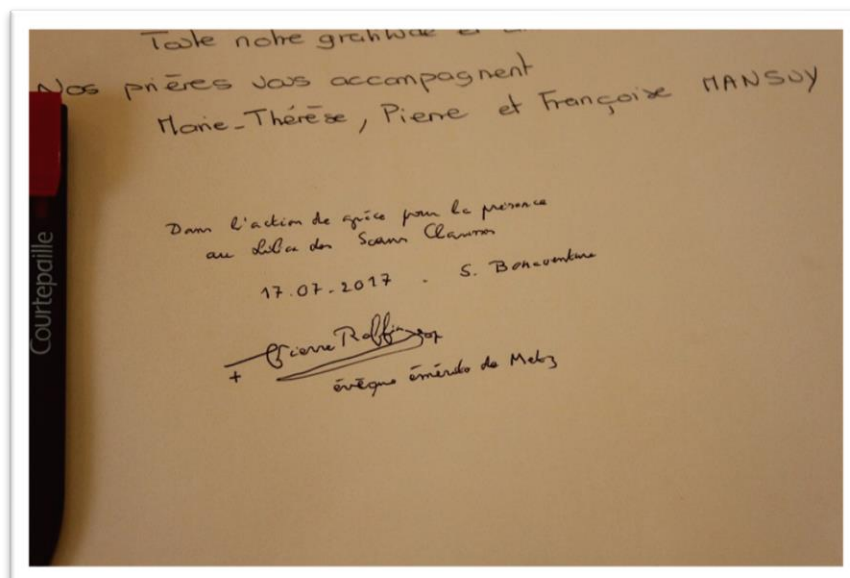 Toute notre gratitude et
Nos prières vous accompagnent
Marie-Thérèse, Pierre et Françoise MANSUY
Dans l'action de grâce pour la présence
au Liban des Sœurs Clarisses
17.07.2017 - S. Bonaventure
+ Pierre Raffin
évêque émérite de Metz
Courtepaille